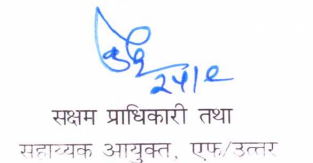 24/2
सक्षम प्राधिकारी तथा
सहाय्यक आयुक्त, एफ/उत्तर